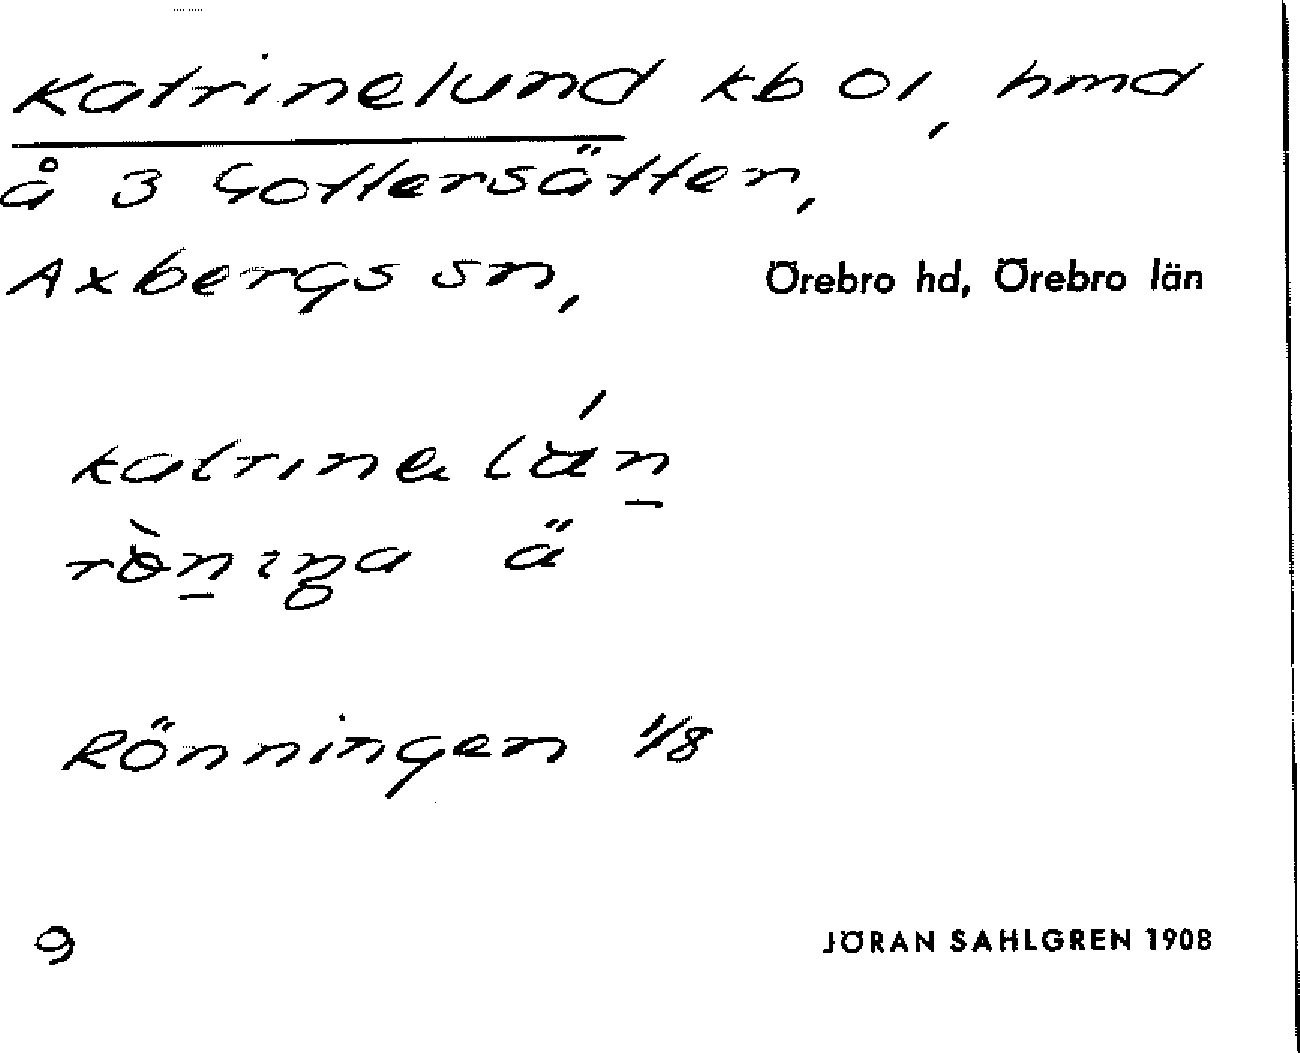 Katrinelund kb Ol, hmd
å 3 Gottersätter,
Axbergs sn, Örebro hd, Örebro län
katrine
ä
Rönningen 1/8
9 JÖRAN SAHLGREN 1908